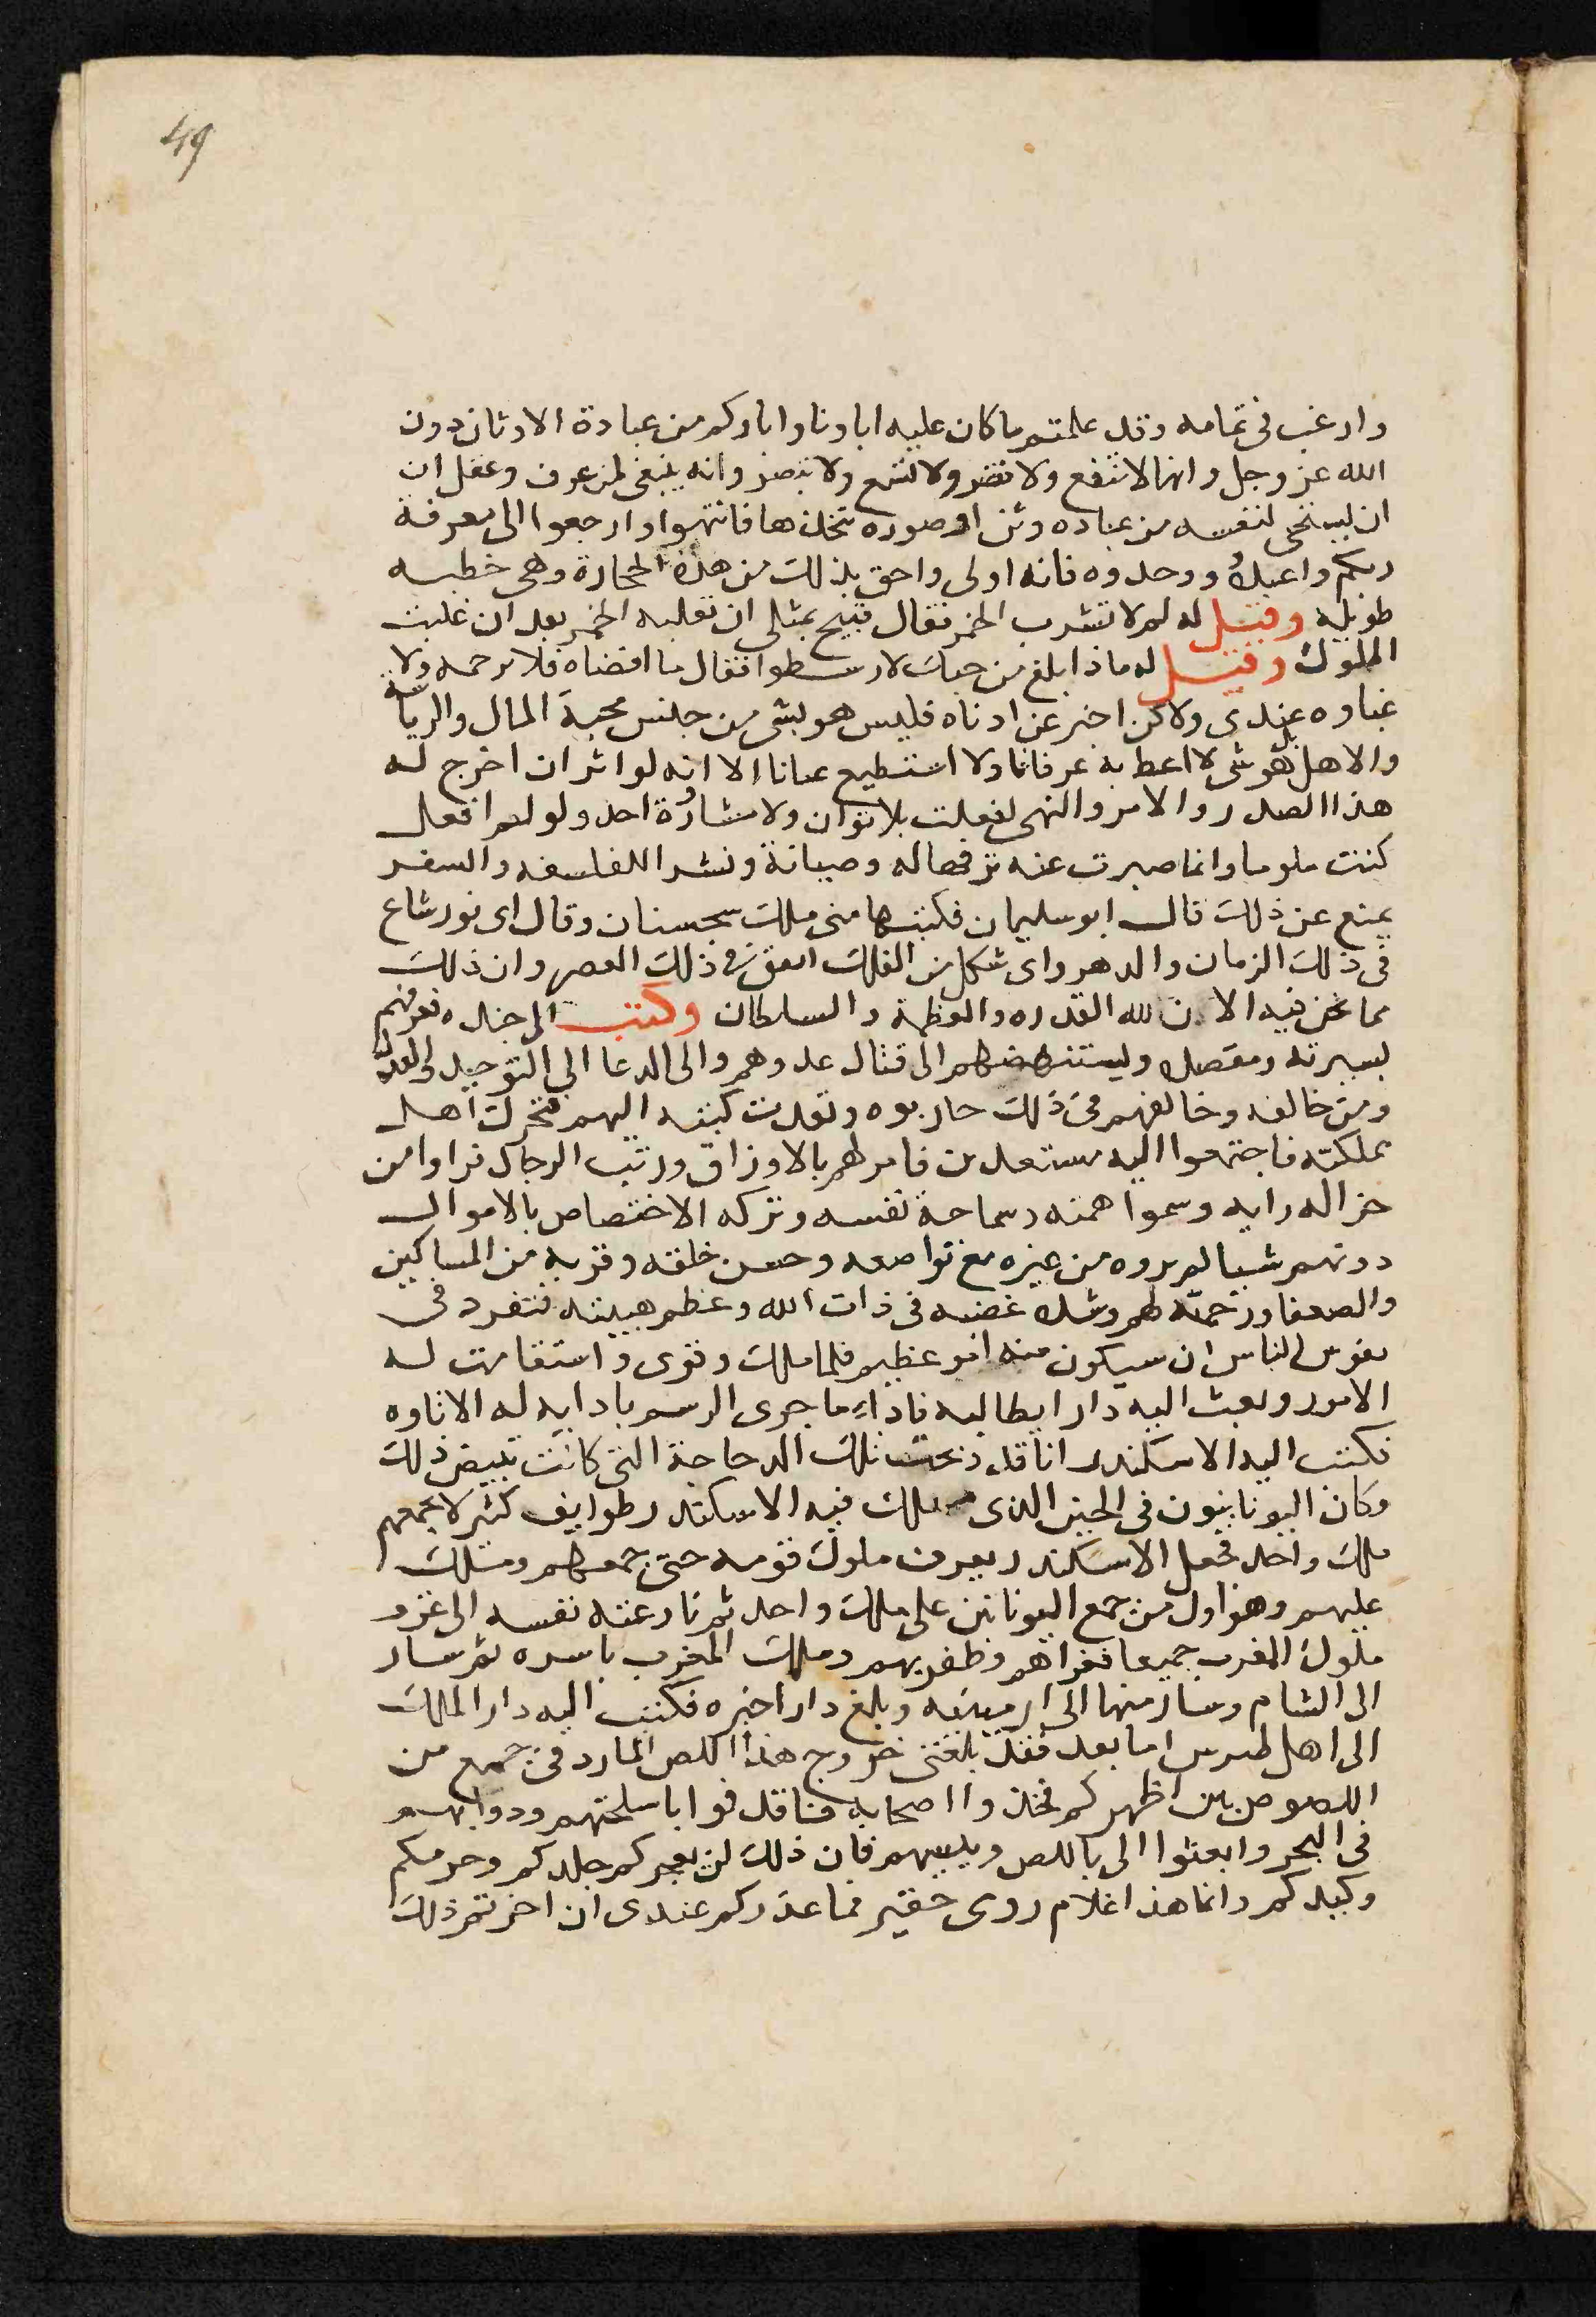 49
وارغب في تمامه وقد علمتم ما كان عليه اباونا واباوكم من عبادة الاوثان دون
الله عز وجل وانها لا تنفع ولا تضر ولا تسمع ولا تبصر وانه ينبغى لمن عرف وعقل ان
ان يستحى لنفسه من عباده وثن او صوره تتخذها فانتهوا وارجعوا الى معرفة
ربكم واعبدوه ووحدوه فانه اولى واحق بذلك من هذه الحجارة وهى خطبه
طويله وقيل له لم لا تشرب الخمر فقال قبيح بمثلى ان تغلبه الخمر بعد ان غلبت
الملوك وقيل له ماذا بلغ من حبك لارسطو فقال ما اقصاه فلا ترجمه ولا
عباوه عندى ولاكن اخبر عن ادناه فليس هو بشى من جنس محبة المال والرياسة
والاهل بل هو شى لا اعطا به عرفانا ولا استطيع عيانا الا انه لو اثر ان اخرج له
هذا الصدر والامر والنهى لفعلت بلا توان ولا مشاورة احد ولو لم افعل
كنت ملوما وانما صبرت عنه ترفها له وصيانة ونشرا للفلسفه والسفر
يمنع عن ذلك قال ابو سليمان فكتبها منى ملك سجستان وقال اى نور شاع
فى ذلك الزمان والدهر واى شكل من الفلك اتفق فى ذلك العصر واين ذلك
مما نحن فيه الان لله القدره والعظمة والسلطان وكتب الى جنده تعرفهم
بسيرته ومقصده ويستنهضهم الى قتال عدوهم والى الدعا الى التوحيد والعدل
ومن خالفه وخالفهم فى ذلك حاربوه ونفدت كتبه اليهم فتحرك اهل
مملكته فاجتمعوا اليه مستعدين فامر لهم بالارزاق ورتب الرجال فراوا من
جزاله رايه وسموا همته وسماحة نفسه وتركه الاختصاص بالاموال
دونهم شيا لم يروه من غيره مع تواضعه وحسن خلقه وقربه من المساكين
والضعفا ورحمته لهم وشده غضبه فى ذات الله وعظم هيبته فتفرد فى
نفوس الناس ان سيكون منه امر عظيم فلما ملك وقوى واستقامت له
الامور وبعث اليه دارا يطالبه باداء ما جرى الرسم بادايه له الاتاوه
فكتب اليه الاسكندر انا قد ذبحت تلك الدجاجة التى كانت تبيض ذلك
وكان اليونانيون فى الحين الذى ملك فيه الاسكندر طوايف كثير لا يجمعهم
ملك واحد فجعل الاسكندر يعرف ملوك قومه حتى جمعهم وملك
عليهم وهو اول من جمع اليونانين على ملك واحد ثم نازعته نفسه الى غزو
ملوك المغرب جميعا فغزاهم وظفر بهم وملك المغرب باسره ثم سار
الى الشام وسار منها الى ارمينيه وبلغ دارا خبره فكتب اليه دارا الملك
الى اهل طرس اما بعد فقد بلغنى خروج هذا اللص المارد فى جمع من
اللصوص بين اظهركم فخذوا اصحابه فاقدفوا باسلحتهم ودوابهم
فى البحر وابعثوا الى باللص وبنيهم فان ذلك لن يعجركم جلدكم وحرمكم
وكيدكم وانما هذا غلام رومى حقير فما عدركم عندى ان اخرتم ذلك